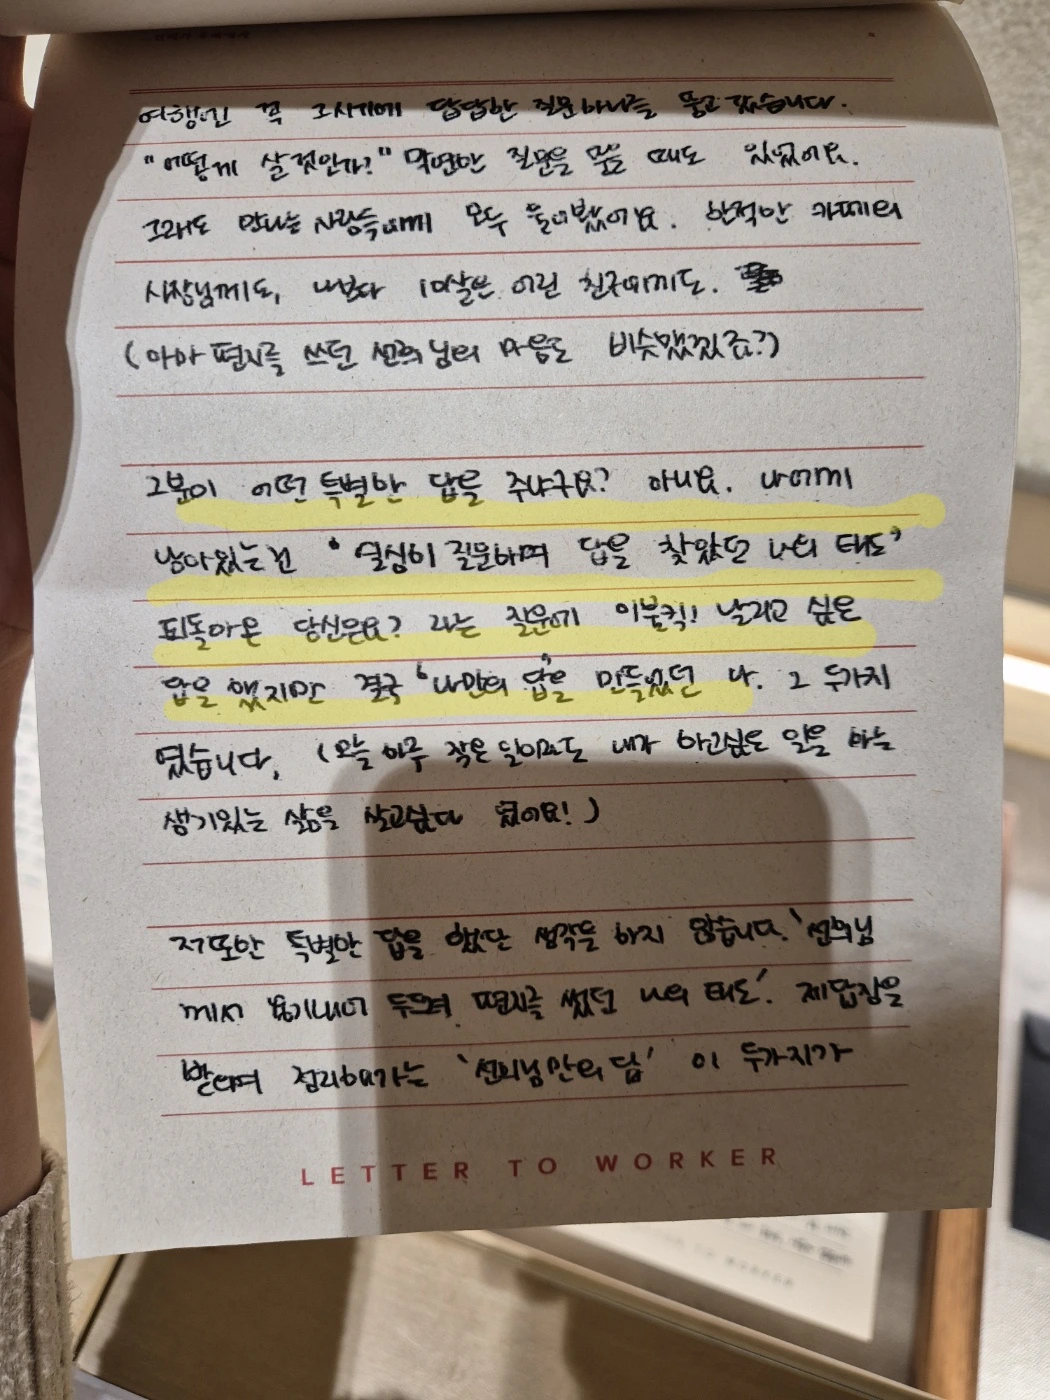 여행엔 꼭 그시기에 답답한 질문하나를 품고 갔습니다.
"어떻게 살것인가?" 막연한 질문을 품을 때도 있었어요.
그래도 만나는 사람들에게 모두 물어봤어요. 한적한 카페의
사장님께도, 나보다 10살은 어린 친구에게도.
(아마 편지를 쓰던 선희님의 마음도 비슷했겠죠?)
그분이 어떤 특별한 답을 주냐구요? 아니요. 나에게
남아있는건 '열심히 질문하며 답을 찾았던 나의 태도'
되돌아온 당신은요? 라는 질문에 이불킥! 날리고 싶은
답을 했지만 결국 '나만의 답'을 만들었던 나. 그 두가지
였습니다. (오늘 하루 작은 일이라도 내가 하고싶은 일을 하는
생기있는 삶을 살고싶다 였어요!)
저또한 특별한 답을 했단 생각을 하지 않습니다. '선희님
께서 용기내어 두드려 편지를 썼던 나의 태도'. 제 답장을
받으며 정리해가는 '선희님만의 답' 이 두가지가
LETTER TO WORKER